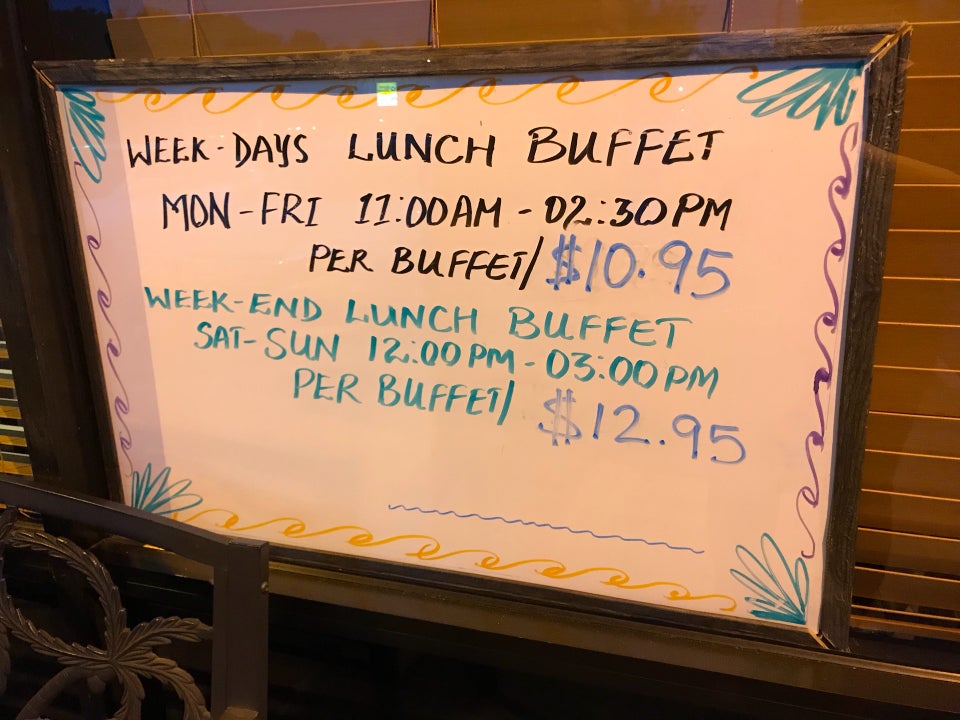 WEEK-DAYS LUNCH BUFFET
MON-FRI 11:00AM - 02:30PM
PER BUFFET/ $10.95
WEEK-END LUNCH BUFFET
SAT-SUN 12:00PM - 03:00PM
PER BUFFET/ $12.95